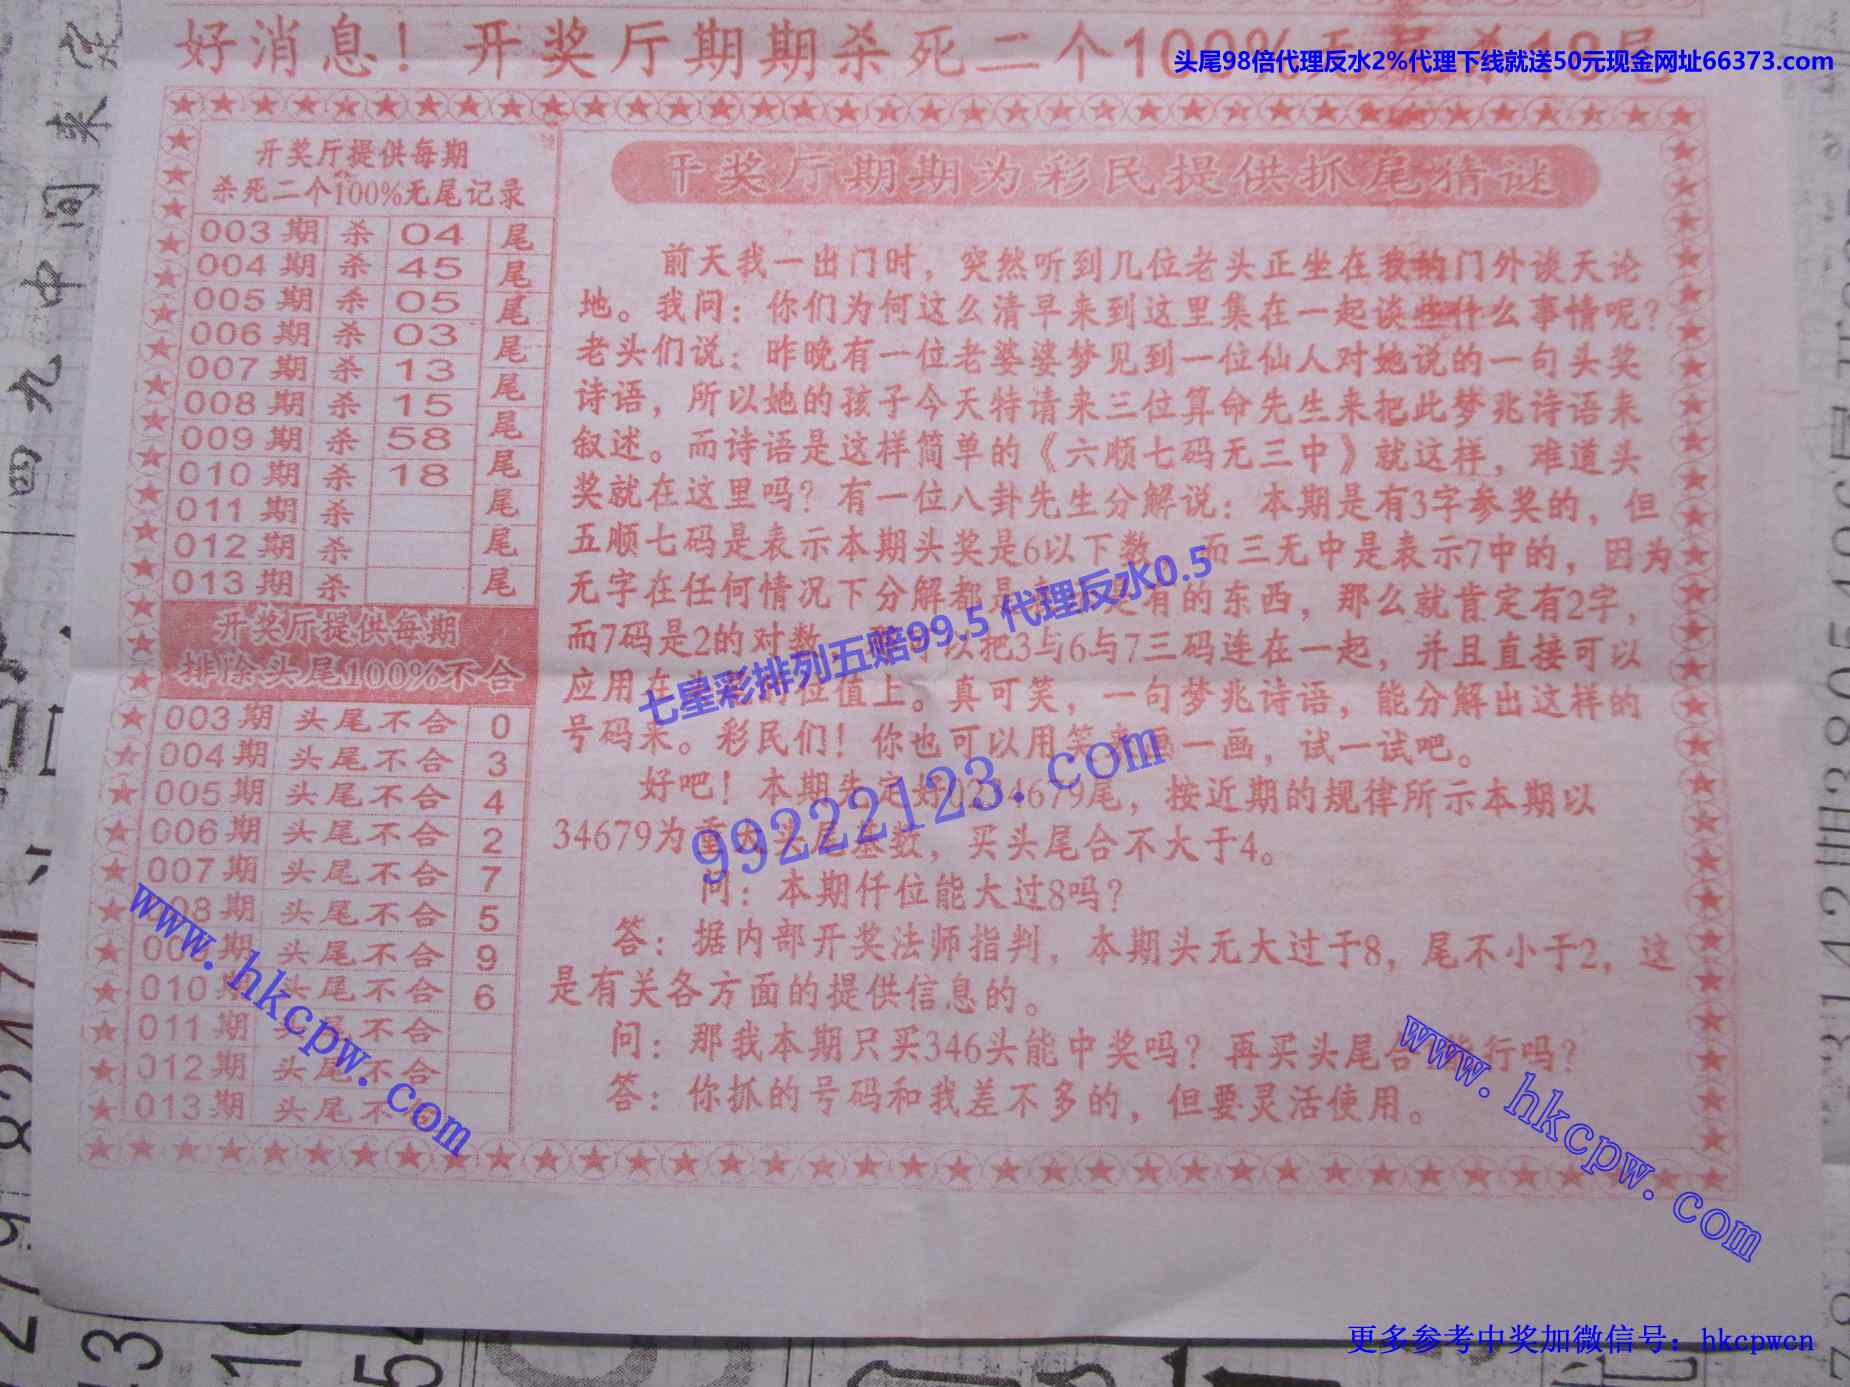 好消息！开奖厅期期杀死二个100%无尾杀18号
头尾98倍代理反水2%代理下线就送50元现金网址66373.com
开奖厅提供每期
杀死二个100%无尾记录
003期 杀 04 尾
004期 杀 45 尾
005期 杀 05 尾
006期 杀 03 尾
007期 杀 13 尾
008期 杀 15 尾
009期 杀 58 尾
010期 杀 18 尾
011期 杀 尾
012期 杀 尾
013期 杀 尾
开奖厅提供每期
排除头尾100%不合
003期 头尾不合 0
004期 头尾不合 3
005期 头尾不合 4
006期 头尾不合 2
007期 头尾不合 7
008期 头尾不合 5
009期 头尾不合 9
010期 头尾不合 6
011期 头尾不合
012期 头尾不合
013期 头尾不
开奖厅期期为彩民提供抓尾猜谜
前天我一出门时，突然听到几位老头正坐在我的门外谈天论
地。我问：你们为何这么清早来到这里集在一起谈些什么事情呢？
老头们说：昨晚有一位老婆婆梦见到一位仙人对她说的一句头奖
诗语，所以她的孩子今天特请来三位算命先生来把此梦兆诗语来
叙述。而诗语是这样简单的《六顺七码无三中》就这样，难道头
奖就在这里吗？有一位八卦先生分解说：本期是有3字参奖的，但
五顺七码是表示本期头奖是6以下数，而三无中是表示7中的，因为
无字在任何情况下分解都是 有的东西，那么就肯定有2字，
而7码是2的对数， 以把3与6与7三码连在一起，并且直接可以
应用在头 的位值上。真可笑，一句梦兆诗语，能分解出这样的
号码来。彩民们！你也可以用笑来画一画，试一试吧。
好吧！本期先定好 4679尾，按近期的规律所示本期以
34679为重大头尾基数，买头尾合不大于4。
问：本期仟位能大过8吗？
答：据内部开奖法师指判，本期头无大过于8，尾不小于2，这
是有关各方面的提供信息的。
问：那我本期只买346头能中奖吗？再买头尾合 行吗？
答：你抓的号码和我差不多的，但要灵活使用。
七星彩排列五赔99.5 代理反水0.5
99222123.com
www.hkcpw.com
www.hkcpw.com
更多参考中奖加微信号：hkcpwcn
四九中间来定